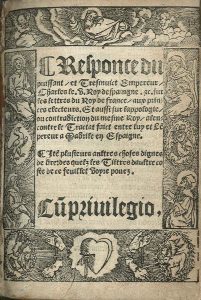 Responce du
puissant et Tresinuict Empereur,
Charles le .V. Roy despaigne .&c. sur
les lettres du Roy de france, aux prin
ces electeurs, Et aussi sur lappologie,
ou contradiction du mesme Roy, alen
contre le Traicte faict entre luy et Lē
pereur a Madrile en Espaigne.
Itē plusieurs aultres choses dignes
de lire desquelz les Tiltres daultre co
ste de ce feullet Voyre pouez.
Cū priuilegio.